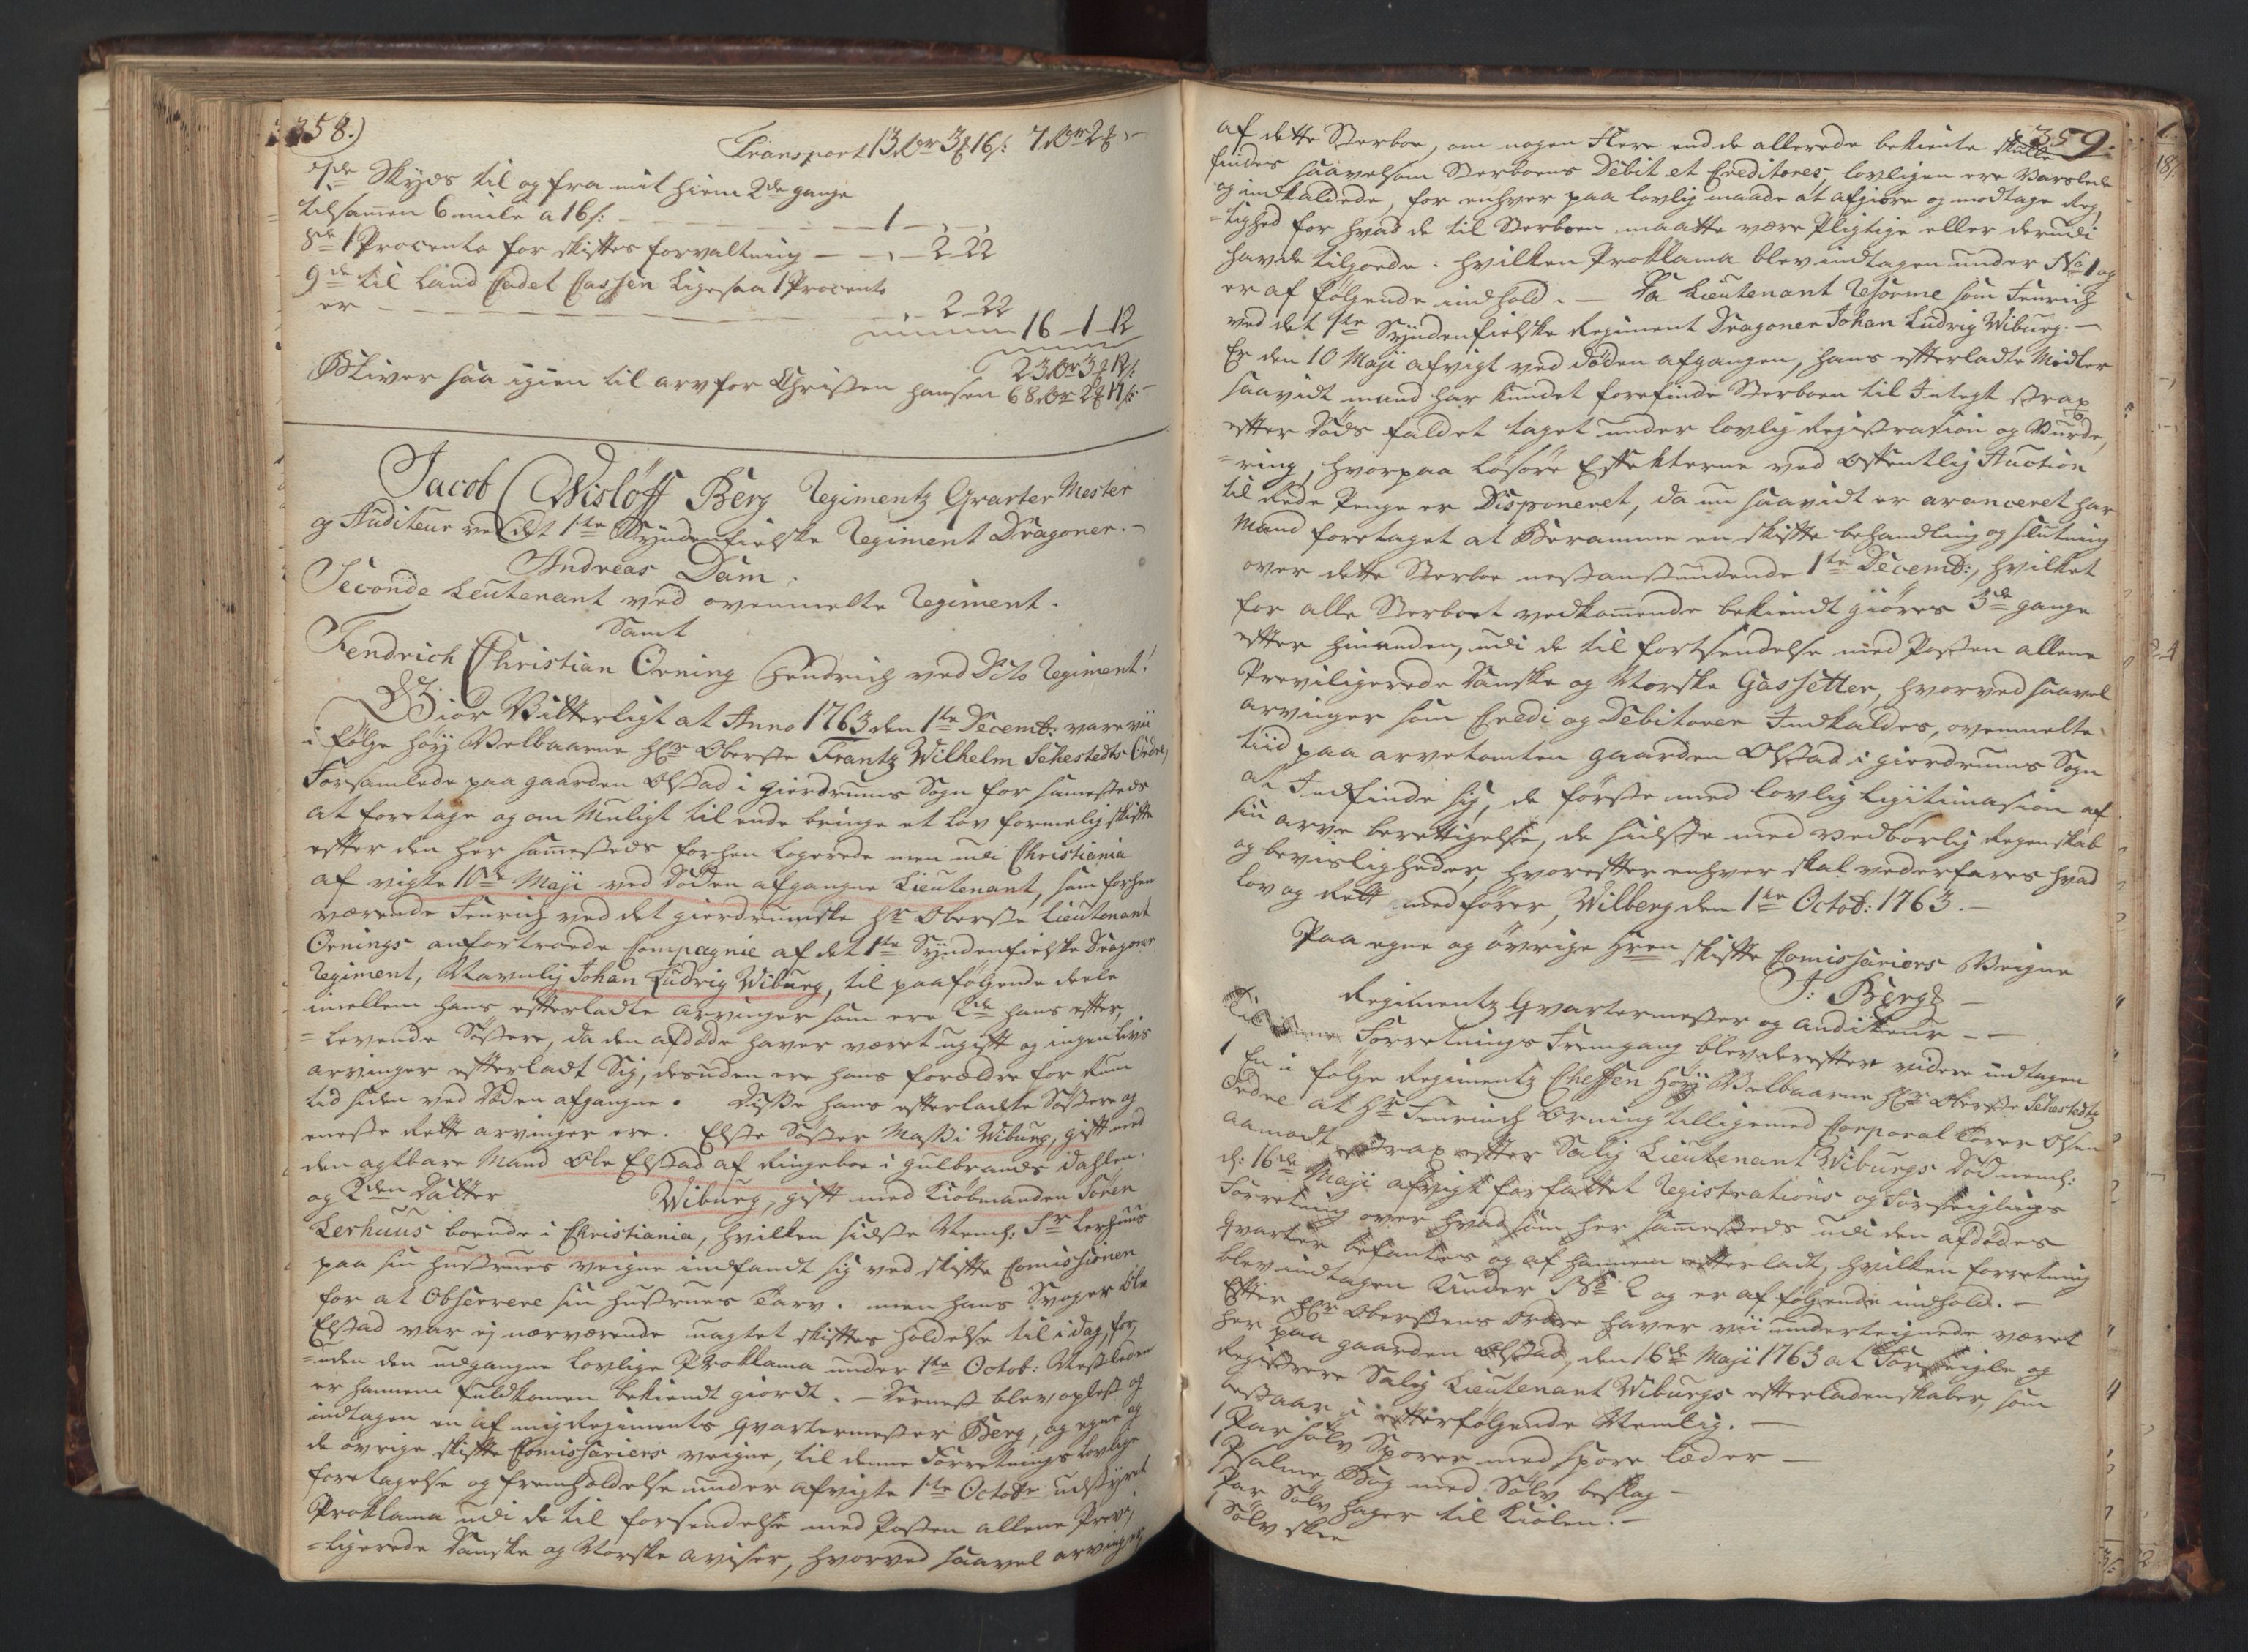 358.)
Transport 13 Dr 3 f 16 s: 7 Dr 2 f
7de Skyds til og fra mit hiem 2de gange
tilsamen 6 mile a 16 s: — 1 —
8de 1 Procento for skiftes forvaltning — 2 22
9de til Land Cadet Cassen ligesaa 1 Procento
er — 2 22
16 — 1 — 12
23 Dr 3 f 12 s:
Bliver saa igien til arv for Christen Hansen 68 Dr 2 f 17 s:
Jacob Wislöff Berg Regimentz Qvarter Mester
og Auditeur ved det 1ste Syndenfielske Regiment Dragoner.
Andreas Dam.
Seconde Leutenant ved ovenmelte Regiment.
Samt
Fendrich Christian Örning Fendrich ved Dito Regiment!
Giör Vitterligt at Anno 1763 den 1ste Decemb: vare vii
i fölge Höyj Velbaarne Hr Oberste Frantz Wilhelm Sehestedts Ordre
forsamlede paa gaarden Olstad i Gierdrums Sogn for samesteds
at foretage og om Muligt til ende bringe et Lov formelig skifte
efter den her sammesteds forhen logerede men udi Christiania
af vigte 10de Maji ved Döden afgangne Lieutenant, som forhen
værende Fenrich ved det gierdrumske Hr Oberste Lieutenant
Örnings anfortroede Compagnie af det 1ste Syndenfielske Dragoner
Regiment, Navnlig Johan Ludvig Wiburg, til paafölgende deele
imellem hans efterladte arvinger som ere 2de hans efter
= levende Söstere, da den afdöde haver været ugift og ingen livs
arvinger efterladt Sig, desuden ere hans forældre for Rum
tid siden ved Döden afgangne. Disse hans efterladte Söstere og
eneste Rette arvinger ere. Elste Söster Massi Wiburg, gift med
den agtbare Mand Ole Elstad af Ringeboe i Gulbrands dahlen.
og 2den Datter Wiburg, gift med Kiöbmanden Sören
Lerhuus boende i Christiania, hvilken sidste Neml: Sr Lerhuus
paa sin Hustrues veigne indfandt sig ved skifte Comissionen
for at Observere sin Hustrues Tarv. men hans Svoger Ole
Elstad var ej nærværende uagtet skiftes holdelse til i dag, for
= uden den udgangne Lovlige Proklama under 1ste Octob: Nestleden
er hannem fuldkomen bekiendt giordt. — Dernest blev oplest og
indtagen en af mig Regiments Qvartermester Berg, og egne og
de övrige skifte Comissariers veigne, til denne Forretnings lovlige
foretagelse og fremholdelse under afvigte 1ste Octobr udstyret
Proklama udi de til forsendelse med Posten allene Previ
= ligerede Danske og Norske aviser, hvorved saavel arvinger
359.
af dette Sterboe, om nogen Flere end de allerede bekiente skulle
findes saavelsom Sterboens Debit et Creditores, lovligen ere Varslede
og indkaldede, for enhver paa lovlig maade at afgiöre og modtage Rig
= tighed for hvad de til Sterboen maatte være Pligtige eller derudi
havde tilgoede. hvilken Proklama blev indtagen under No 1 og
er af fölgende indhold. — Da Lieutenant Reforme som Fenrich
ved det 1ste Syndenfielske Regiment Dragoner Johan Ludvig Wiburg. —
Er den 10 Maji afvigt ved döden afgangen, hans efterladte Midler
saavidt mand har kundet forefinde Sterboen til Integt strax
efter Döds faldet taget under lovlig Registration og Vurde
= ring, hvorpaa Lösöre Effekterne ved offentlig Auction
til Rede Penge er Disponeret, da nu saavidt er avanceret har
Mand foretaget at Beramme en skifte behandling og slutning
over dette Sterboe nestanstundende 1ste Decemb:, hvilket
for alle Sterboet vedkommende bekiendt giöres 3de gange
efter hinanden, udi de til fortsendelse med Posten allene
Previligerede Danske og Norske Gassetter, hvorved saavel
arvinger som Credi og Debitorer Indkaldes, ovenmelte
tiid paa arvetomten gaarden Olstad i gierdrums Sogn
at Indfinde sig, de förste med lovlig Ligitimasion af
sin arve berettigelse, de sidste med vedborlig Regenskab
og bevisligheder, hvorefter enhver skal vederfares hvad
lov og Rett medförer, Wilberg den 1ste Octob: 1763. —
Paa egne og övrige Hren skifte Comissariers Veigne
J: Berg
Regimentz Qvartermester og auditeur —
Til denne Forretnings Fremgang blev derefter videre indtagen
1 En i fölge Regimentz Cheffen Höyj Velbaarne Hr Oberste Sehestedtz
Ordre at Hr Fenrich Örning tilligemed Corporal Torer Olsen
aamodt strax efter Salig Lieutenant Wiburgs Död neml:
d: 16de Maji afvigt forfattet Registrations og Forseiglings
Forretning over hvad som her sammesteds udi den afdödes
Qvarter befantes og af hannem efterladt, hvilken forretning
blev indtagen under No 2 og er af fölgende indhold. —
Efter Hr Oberstens Ordre haver vii underteignede været
her paa gaarden Olstad, den 16de Maji 1763 at Forseigle og
Registrere Salig Lieutenant Wiburgs efterladenskaber, som
bestaar i efterfölgende Nemlig. —
1 Par sölv Sporer med spore læder —
1 Psalme Bog med Sölv beslag —
1 Par Sölv hager til Kiolen. —
1 Sölv skee